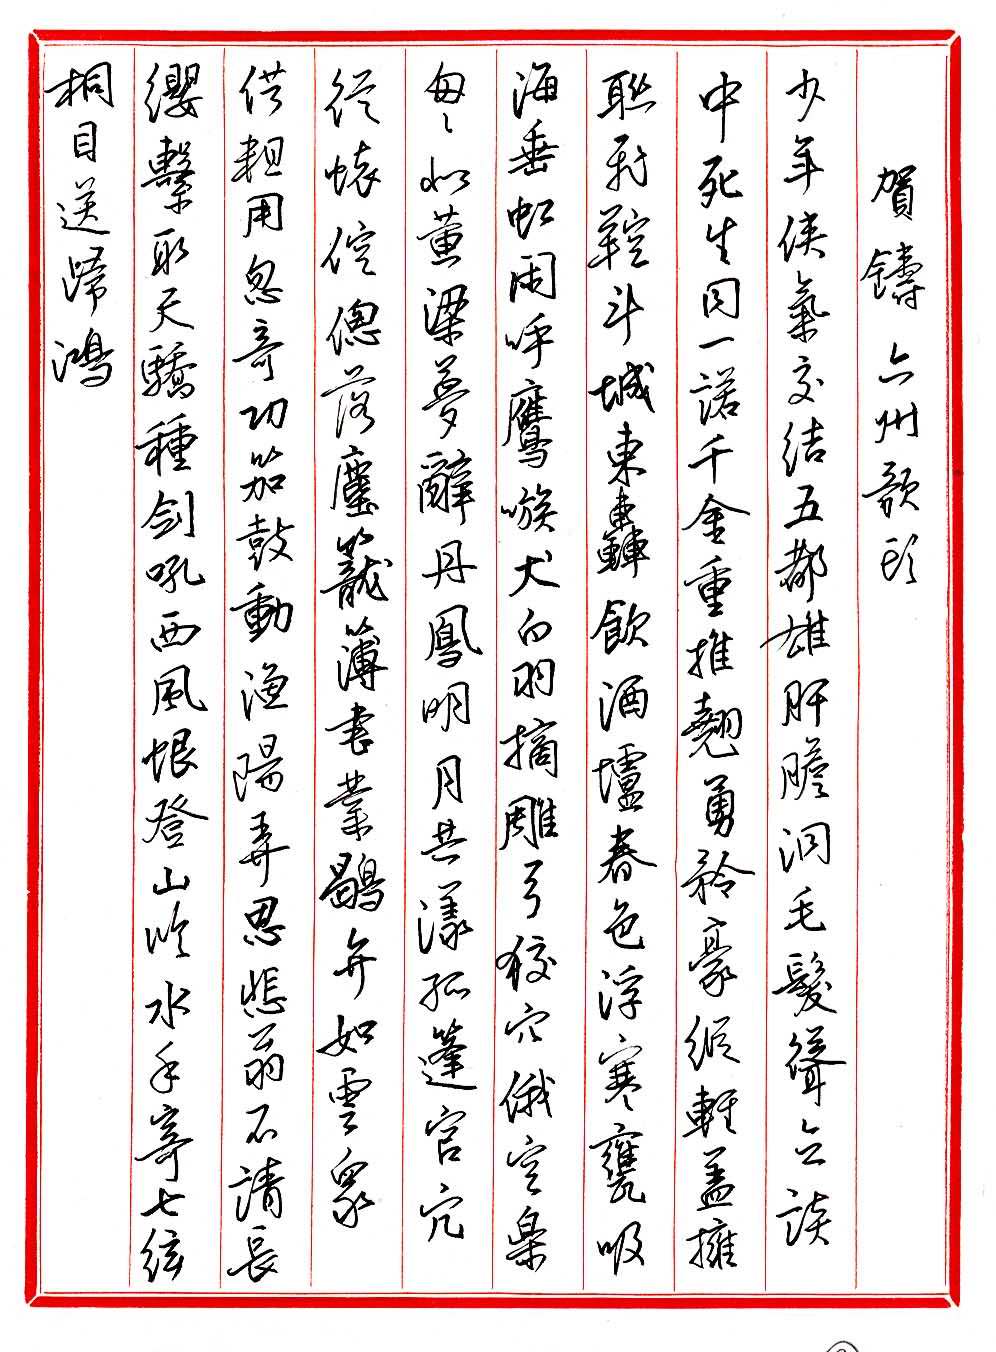 賀鑄 六州歌頭
少年俠氣交結五都雄肝膽洞毛髮聳立談
中死生同一諾千金重推翹勇矜豪縱輕蓋擁
聯飛鞚斗城東轟飲酒壚春色浮寒甕吸
海垂虹閑呼鷹嗾犬白羽摘雕弓狡穴俄空樂
匆々如黃粱夢辭丹鳳明月共漾孤篷官冗
從懷倥傯落塵籠簿書叢鶡弁如雲眾
供粗用忽奇功笳鼓動漁陽弄思悲翁不請長
纓繫取天驕種劍吼西風恨登山臨水手寄七絃
桐目送歸鴻